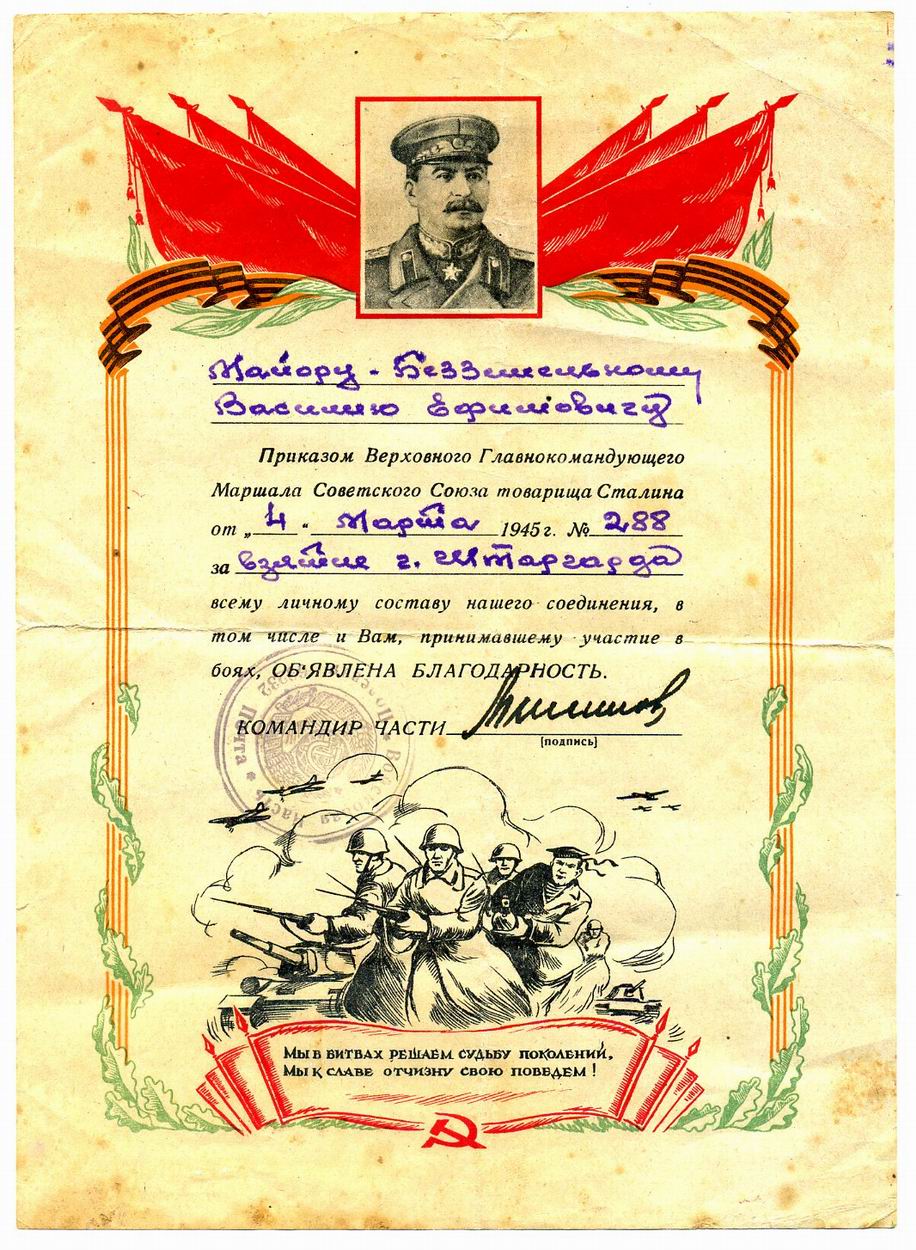 Майору - Безземельному
Василию Ефимовичу
Приказом Верховного Главнокомандующего
Маршала Советского Союза товарища Сталина
от „4“ Марта 1945 г. № 288
за взятие г. Штаргарда
всему личному составу нашего соединения, в
том числе и Вам, принимавшему участие в
боях, ОБ'ЯВЛЕНА БЛАГОДАРНОСТЬ.
КОМАНДИР ЧАСТИ
(подпись)
Почта
часть
МЫ В БИТВАХ РЕШАЕМ СУДЬБУ ПОКОЛЕНИЙ,
МЫ К СЛАВЕ ОТЧИЗНУ СВОЮ ПОВЕДЕМ!